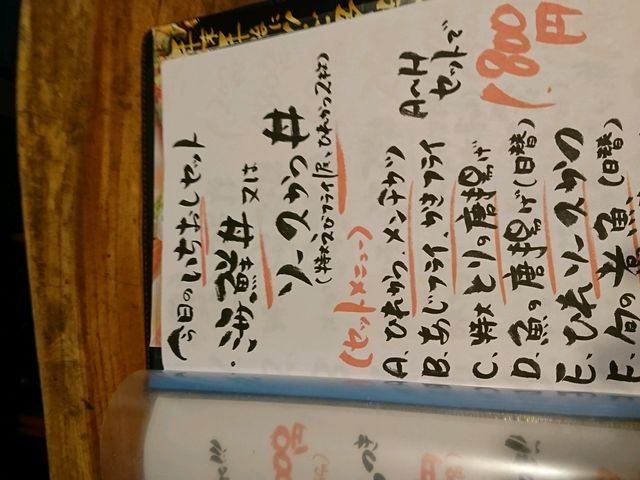 今日のいちおしセット
・海鮮丼 又は
ソースかつ丼
(特大えびフライ1尾、ひれかつ2枚)
(セットメニュー)
A〜H
セットで
1,800円
A、ひれかつ、メンチカツ
B、あじフライ、かきフライ
C、特大とりの唐揚げ
D、魚の唐揚げ(日替)
E、ひれソースかつ
F、旬の煮魚(日替)
00円
つき